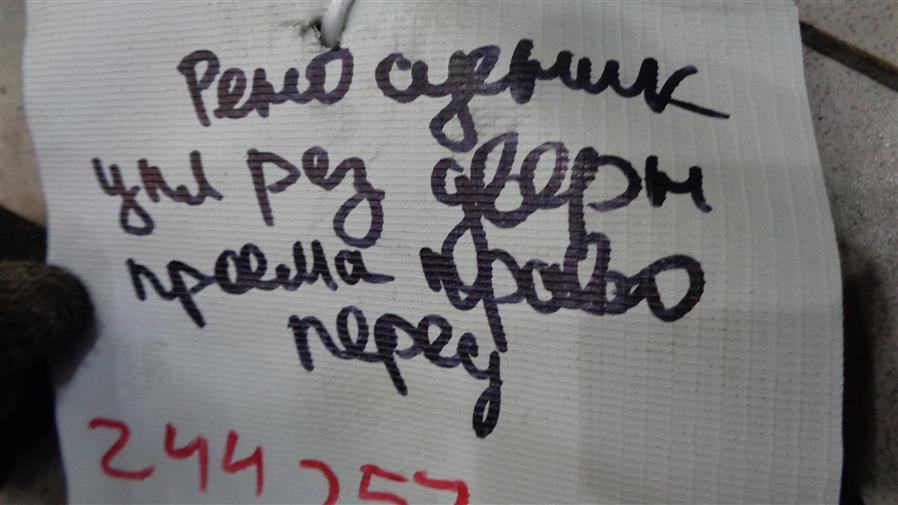 Рено сценик
упл рез дверн
проема право
перед
244 257